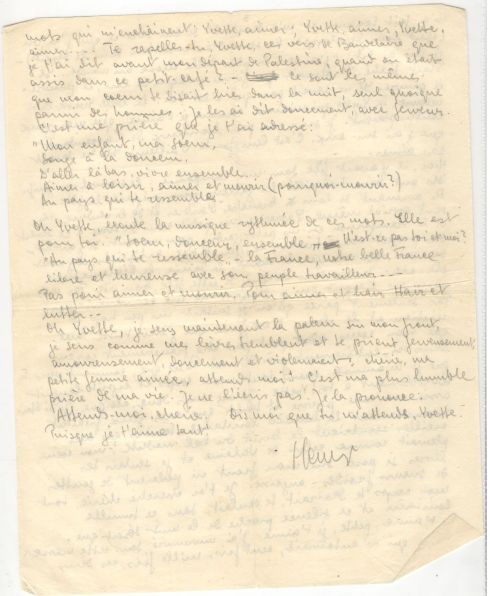 mots qui m'enchaînent: Yvette, aimer; Yvette, aimer, Yvette,
aimer.... Te rapelles-tu, Yvette, ces vers de Baudelaire que
je t'ai dit avant mon départ de Palestine, quand on était
assis dans ce petit café? - Ce sont les mêmes
que mon coeur se disait hier dans la nuit, seul quoique
parmi des hommes. Je les ai dit doucement, avec ferveur.
C'est une prière que je t'ai adressé:
"Mon enfant, ma soeur,
Songe à la douceur,
D'aller là bas, vivre ensemble...
Aimer à loisir, aimer et mourir (pourquoi mourir?)
Au pays, qui te ressemble.
Oh Yvette, écoute la musique rythmée de ces mots. Elle est
pour toi. "Soeur, douceur, ensemble N'est-ce pas toi et moi?
"Au pays, qui te ressemble, - la France, notre belle France
libre et heureuse avec son peuple travailleur---
Pas pour aimer et mourir. Pour aimer et haïr. Haïr et
lutter..
Oh Yvette, je sens maintenant la paleur sur mon front,
je sens comme mes lèvres tremblent et te prient, ferveusement,
amoureusement, doucement et violemment, chérie, ma
petite femme aimée, attends moi! C'est ma plus humble
prière de ma vie. Je ne l'écris pas. Je la prononce.
Attends-moi, chérie. Dis moi que tu m'attends, Yvette.
Puisque je t'aime tant!